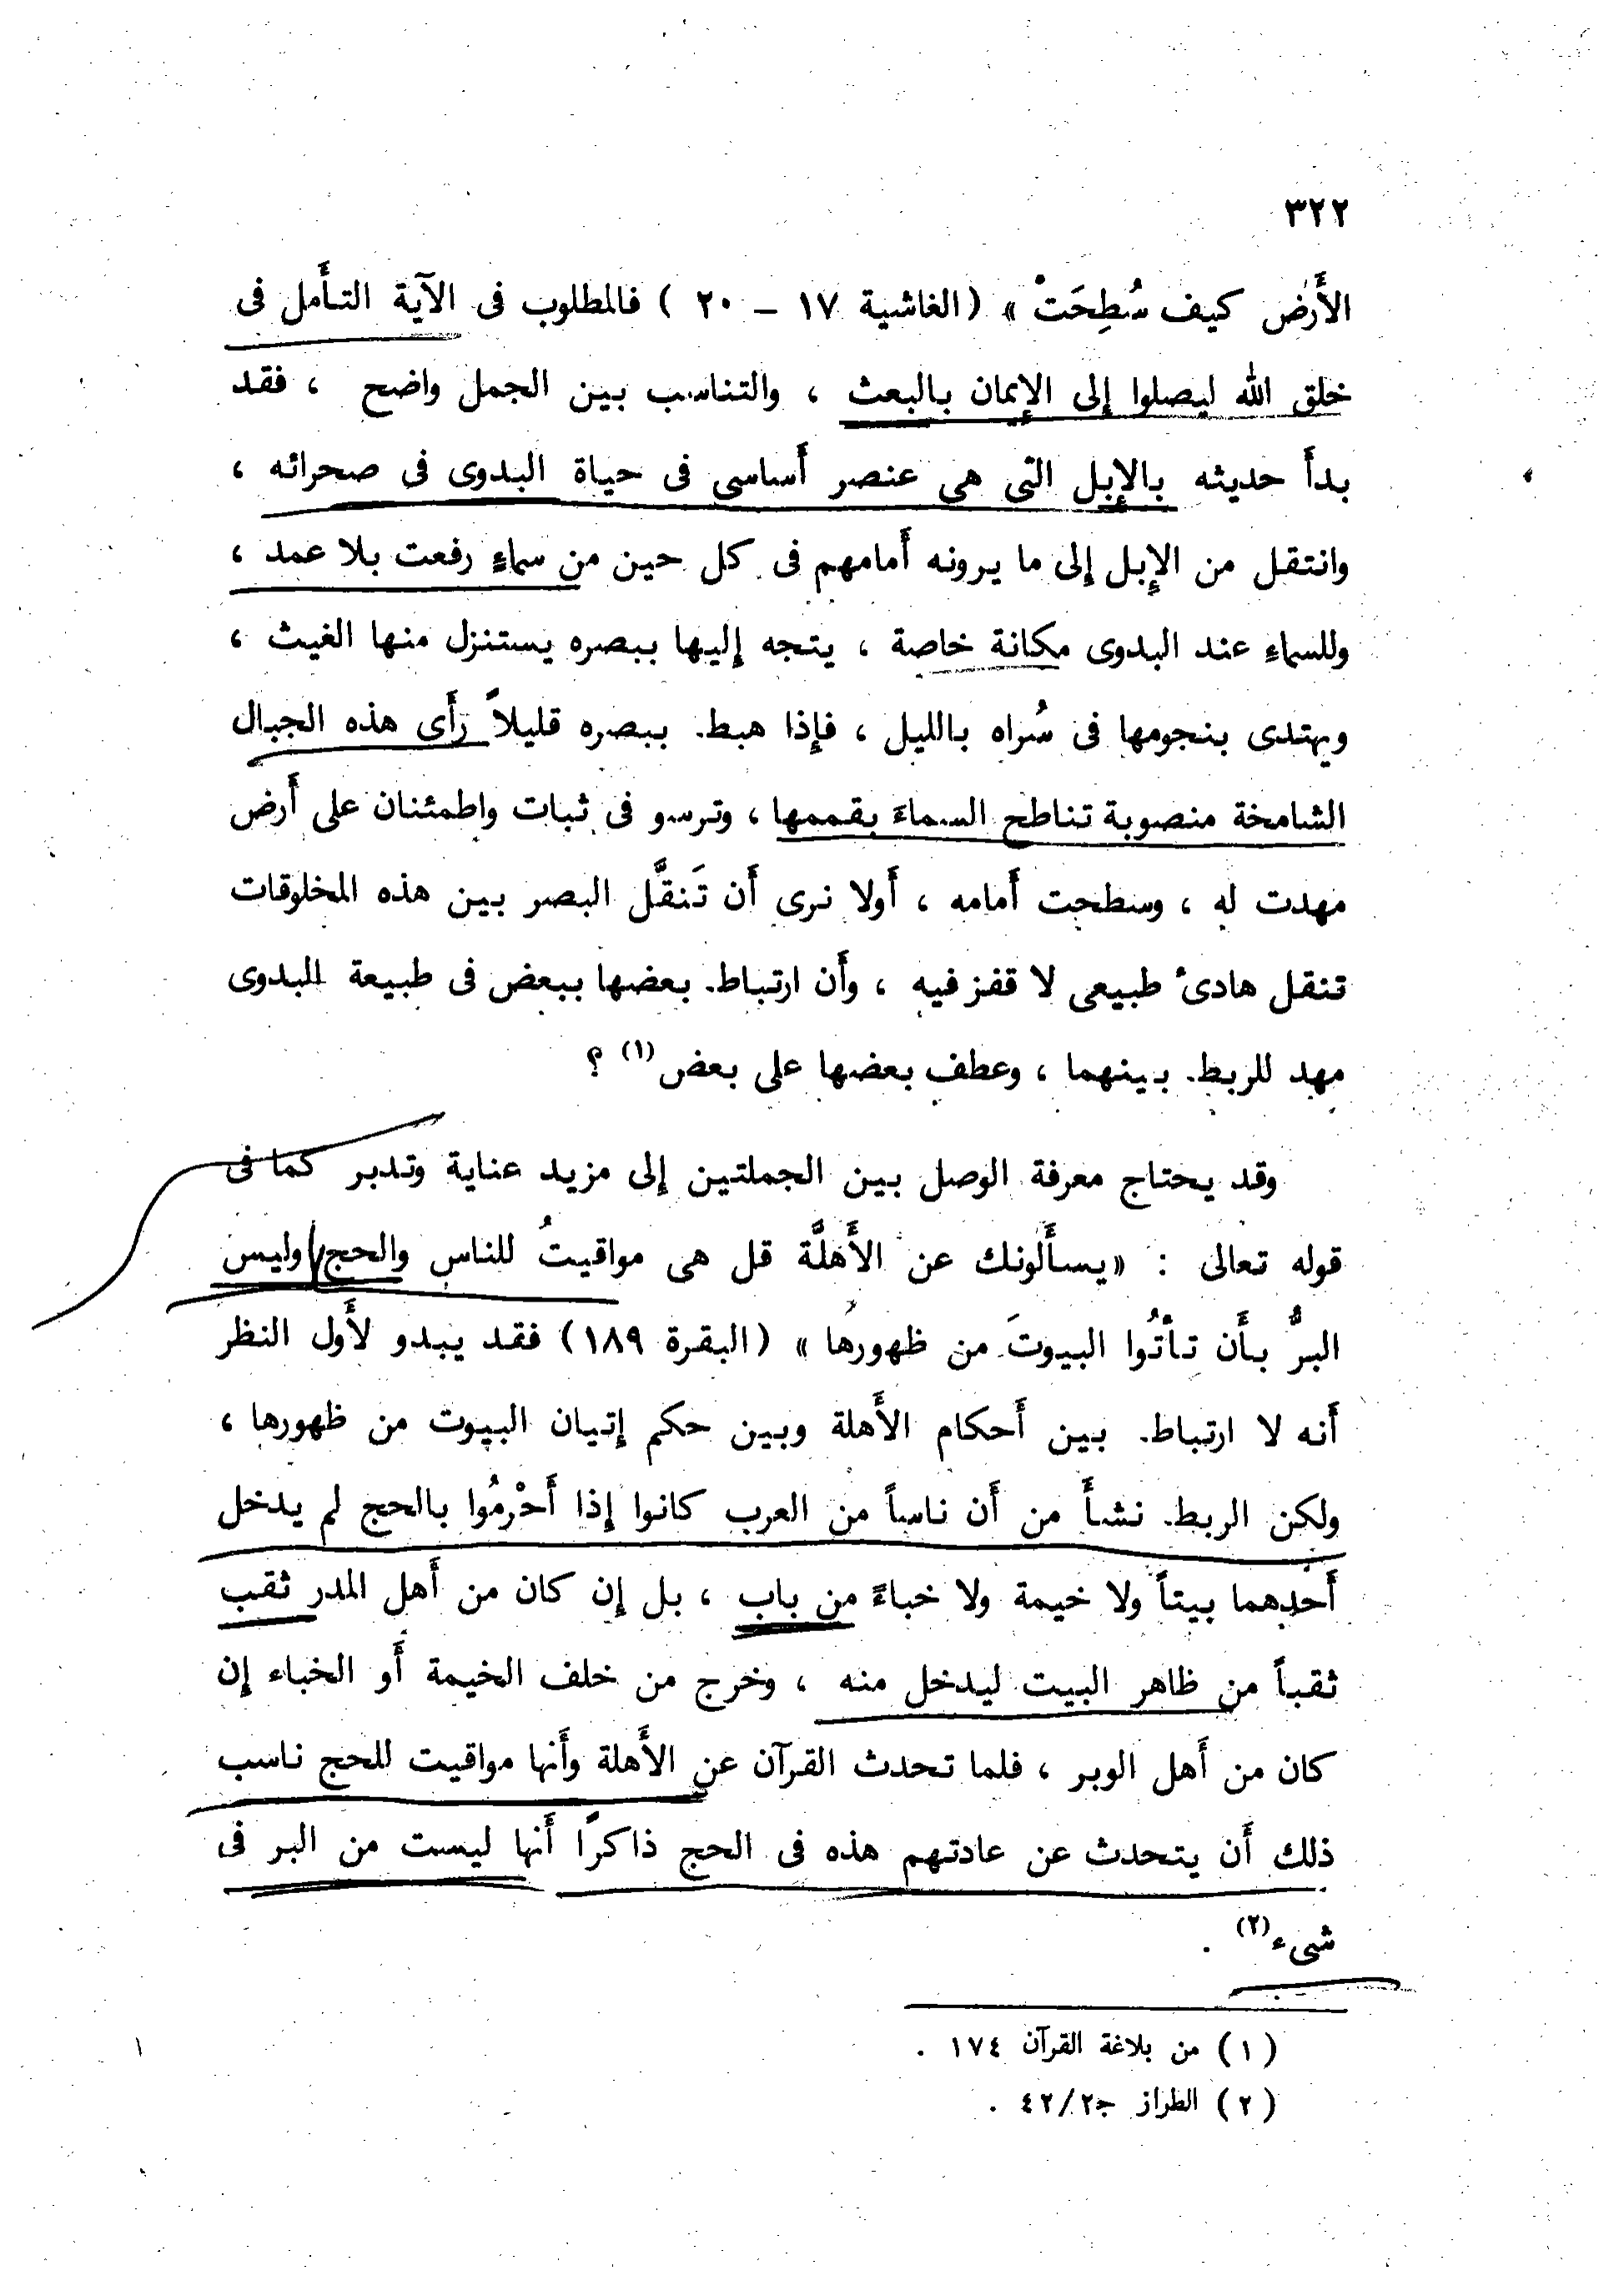 ٣٢٢
الأَرْض كيف سُطِحَتْ » (الغاشية ١٧ – ٢٠ ) فالمطلوب فى الآية التأَمل فى
خلق الله ليصلوا إلى الإيمان بالبعث ، والتناسب بين الجمل واضح ، فقد
بدأَ حديثه بالإِبل التى هى عنصر أَساسى فى حياة البدوى فى صحرائه ،
وانتقل من الإِبل إلى ما يرونه أَمامهم فى كل حين من سماءٍ رفعت بلا عمد ،
وللسماءِ عند البدوى مكانة خاصة ، يتجه إليها ببصره يستنزل منها الغيث ،
ويهتدى بنجومها فى سُراه بالليل ، فإِذا هبط ببصره قليلاً رأَى هذه الجبال
الشامخة منصوبة تناطح السماءَ بقممها ، وترسو فى ثبات واطمئنان على أَرض
مهدت له ، وسطحت أَمامه ، أَولا نرى أَن تَنقَّل البصر بين هذه المخلوقات
تنقل هادئ طبيعى لا قفز فيه ، وأَن ارتباط بعضها ببعض فى طبيعة البدوى
مهد للربط بينهما ، وعطف بعضها على بعض (١) ؟
وقد يحتاج معرفة الوصل بين الجملتين إلى مزيد عناية وتدبر كما فى
قوله تعالى : «يسأَلونك عن الأَهلَّة قل هى مواقيتُ للناس والحج وليس
البرُّ بأَن تأْتُوا البيوتَ من ظهورها » (البقرة ١٨٩) فقد يبدو لأَول النظر
أَنه لا ارتباط بين أَحكام الأَهلة وبين حكم إتيان البيوت من ظهورها ،
ولكن الربط نشأَ من أَن ناساً من العرب كانوا إذا أَحْرمُوا بالحج لم يدخل
أَحدهما بيتاً ولا خيمة ولا خباءً من باب ، بل إن كان من أَهل المدر ثقب
ثقباً من ظاهر البيت ليدخل منه ، وخرج من خلف الخيمة أَو الخباء إن
كان من أَهل الوبر ، فلما تحدث القرآن عن الأَهلة وأَنها مواقيت للحج ناسب
ذلك أَن يتحدث عن عادتهم هذه فى الحج ذاكرًا أَنها ليست من البر فى
شىء (٢) .
( ١ ) من بلاغة القرآن ١٧٤ .
( ٢ ) الطراز ج٢/٤٢ .